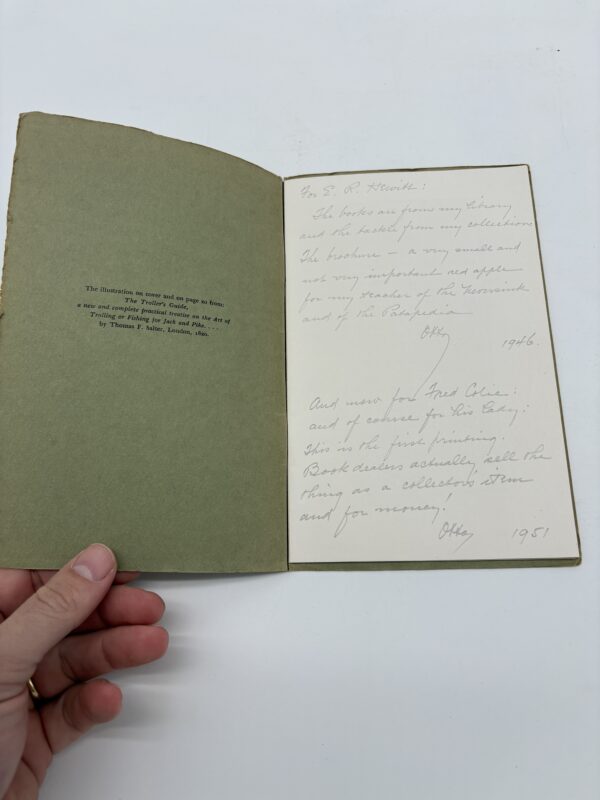 The illustration on cover and on page 20 from:
The Troller's Guide,
a new and complete practical treatise on the Art of
Trolling or Fishing for Jack and Pike. . . .
by Thomas F. Salter, London, 1820.
For E. R. Hewitt:
The books are from my library
and the tackle from my collections
The brochure — a very small and
not very important red apple
for my teacher of the Neversink
and of the Patapedia
Otto
1946.
And now for Fred Colie:
and of course for his Lady:
This is the first printing.
Book dealers actually sell the
thing as a collectors' item
and for money!
Otto 1951